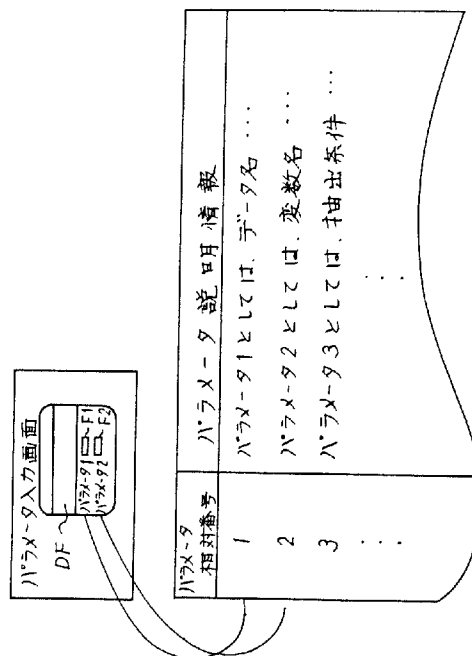 パラメータ入力画面
DF
パラメータ1 F1
パラメータ2 F2
パラメータ
相対番号
パラメータ説明情報
1
パラメータ1としては、データ名 ・・・
2
パラメータ2としては、変数名 ・・・
3
パラメータ3としては、抽出条件 ・・・